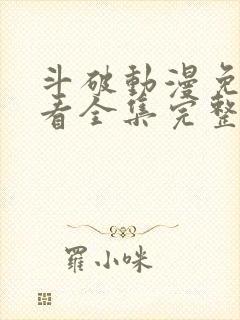 斗破動漫免
看全集完整
羅小咪